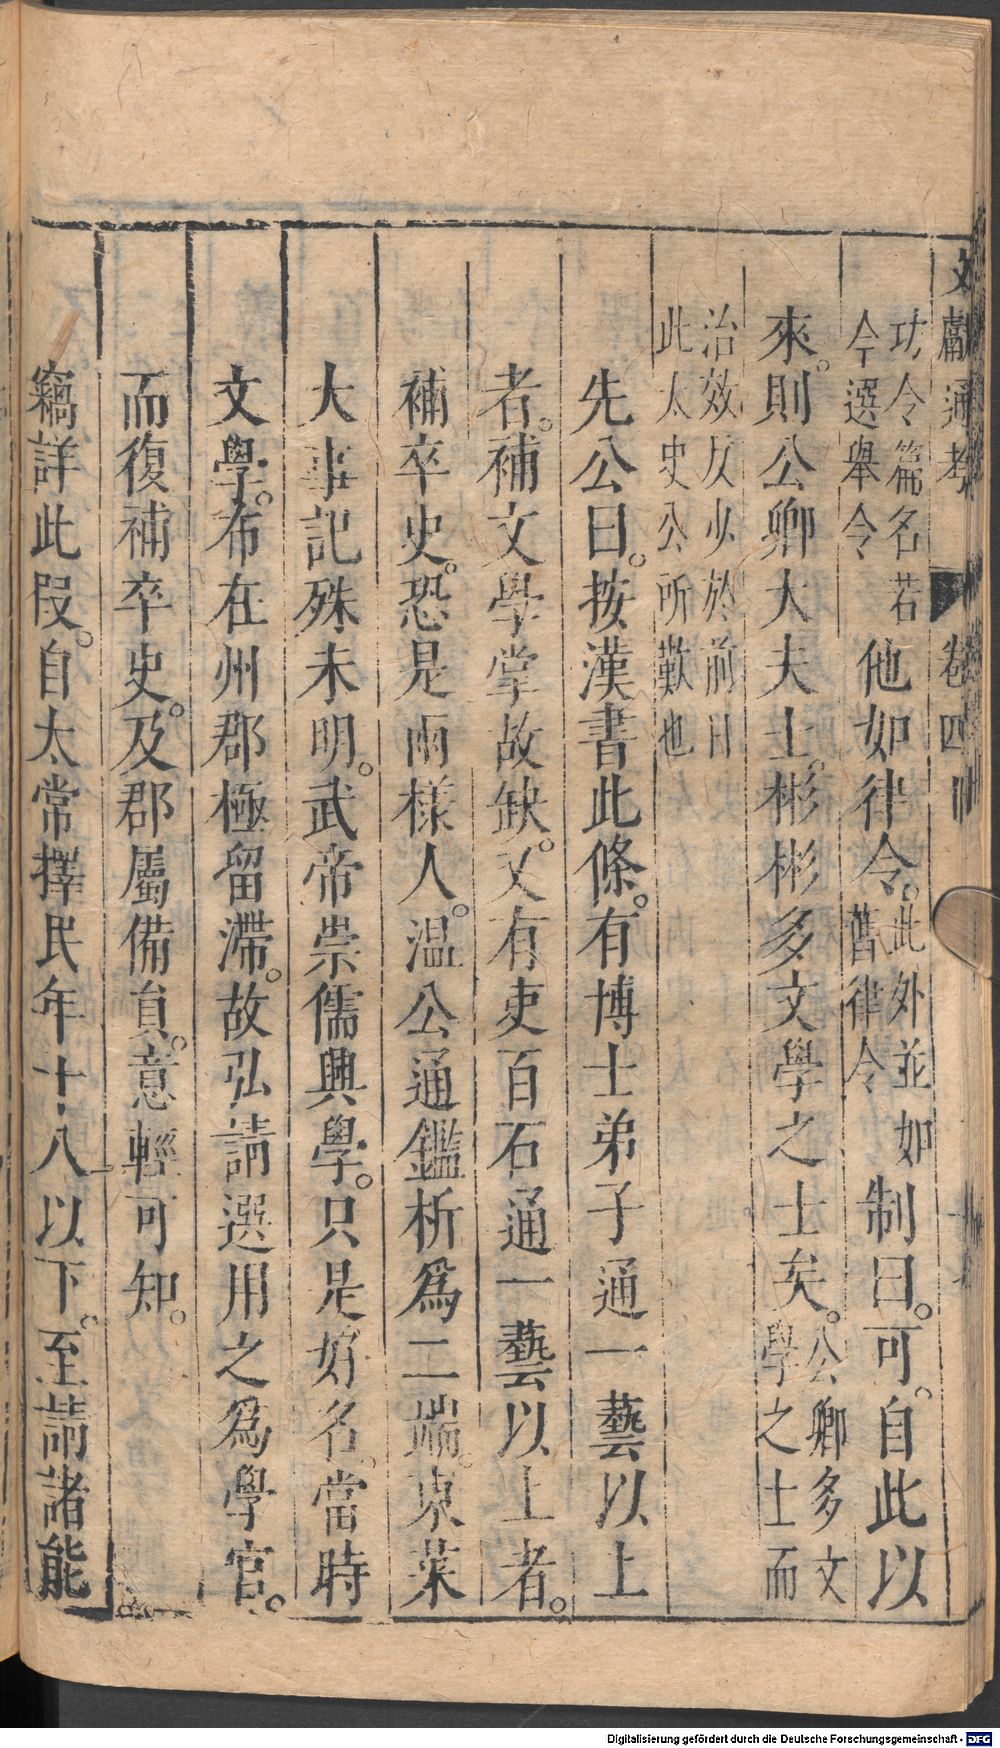 文獻通考 卷四十
功令篇名若今選舉令他如律令。此外並如舊律令制曰。可。自此以
來。則公卿大夫士。彬彬多文學之士矣。公卿多文學之士而
治效反少於前日此太史公所歎也
先公曰。按漢書此條。有博士弟子通一藝以上
者。補文學掌故缺。又有吏百石通一藝以上者。
補卒史。恐是兩樣人。温公通鑑析爲二端。東萊
大事記殊未明。武帝崇儒興學。只是好名。當時
文學。布在州郡極留滯。故弘請選用之爲學官。
而復補卒史。及郡屬備員。意輕可知。
竊詳此段。自太常擇民年十八以下。至請諸能
Digitalisierung gefördert durch die Deutsche Forschungsgemeinschaft - DFG